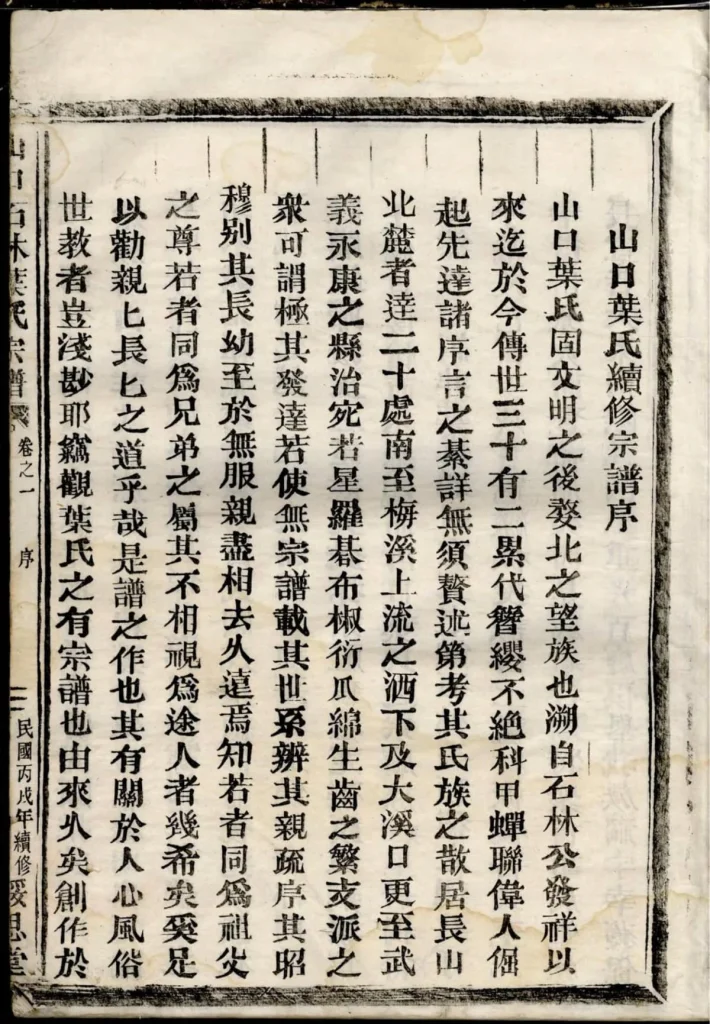 山口葉氏續修宗譜序
山口葉氏固文明之後婺北之望族也溯自石林公發祥以
來迄於今傳世三十有二累代簪纓不絶科甲蟬聯偉人倔
起先達諸序言之綦詳無須贅述第考其氏族之散居長山
北麓者逹二十處南至梅溪上流之洒下及大溪口更至武
義永康之縣治宛若星羅碁布椒衍瓜綿生齒之繁支派之
衆可謂極其發達若使無宗譜載其世系辨其親疏序其昭
穆别其長幼至於無服親盡相去久遠焉知若者同爲祖父
之尊若者同爲兄弟之屬其不相視爲途人者幾希矣奚足
以勸親匕長匕之道乎哉是譜之作也其有關於人心風俗
世教者豈淺尠耶竊觀葉氏之有宗譜也由來久矣創作於
山口石林葉氏宗譜 卷之一 序 二 民國丙戌年續修 愛思堂